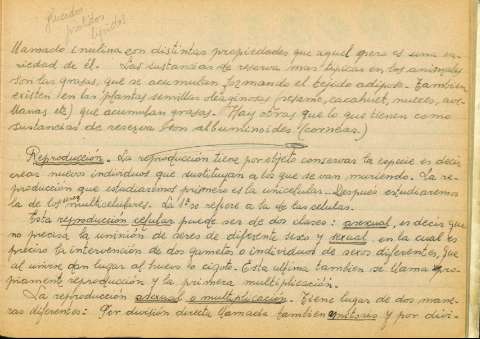 glucidos
protidos
lipidos
llamado inulina con distintas propiedades que aquel pero es una va-
riedad de él. Las sustancias de reserva mas típicas en los animales
son las grasas, que se acumulan formando el tejido adiposo. Tambien
existen en las plantas semillas oleaginosas (sesamo, cacahuet, nueces, ave-
llanas etc) que acumulan grasas. Hay otras que lo que tienen como
sustancias de reserva son albuminoides (cornetas.)
Reproducción. La reproducción tiene por objeto conservar la especie es decir
crear nuevos individuos que sustituyan a los que se van muriendo. La re-
producción que estudiaremos primero es la unicelular. Despues estudiaremos
la de los seres multicelulares. La 1ª se refiere a la de las celulas.
Esta reproducción celular puede ser de dos clases: asexual, es decir que
no precisa la unión de seres de diferente sexo y sexual, en la cual es
preciso la intervención de dos gametos o individuos de sexos diferentes, que
al unirse dan lugar al huevo o cigoto. Esta ultima tambien se llama pro-
piamente reproducción y la primera multiplicación.
La reproducción asexual o multiplicación. Tiene lugar de dos mane-
ras diferentes: Por división directa llamada tambien amitosis y por divi-